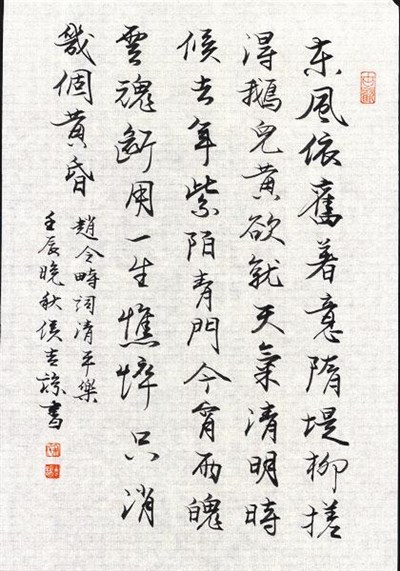 東風依舊著意隋堤柳搓
得鵝兒黃欲就天氣清明時
候去年紫陌青門今宵雨魄
雲魂斷用一生憔悴只消
幾個黃昏
趙令畤詞清平樂
壬辰晚秋侯吉諒書